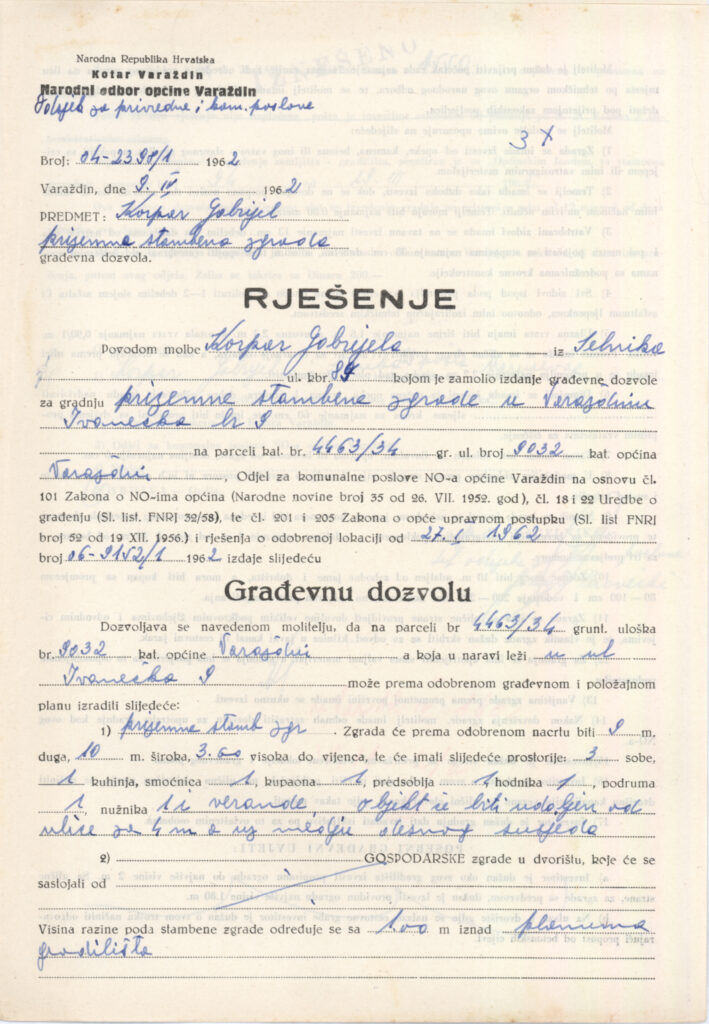 Narodna Republika Hrvatska
Kotar Varaždin
Narodni odbor općine Varaždin
Odsjek za privredne i kom. poslove
3 X
Broj: 04-2398/1 1962
Varaždin, dne 9. IV 1962
PREDMET: Korpar Gabrijel
prizemna stambena zgrada
građevna dozvola.
RJEŠENJE
Povodom molbe Korpar Gabrijela iz
ul. kbr. 87 kojom je zamolio izdanje građevne dozvole
za gradnju prizemne stambene zgrade u Varaždinu
Ivanečka br 9
na parceli kat. br. 4463/34 gr. ul. broj 9032 kat. općina
Varaždin, Odjel za komunalne poslove NO-a općine Varaždin na osnovu čl.
101 Zakona o NO-ima općina (Narodne novine broj 35 od 26. VII. 1952. god), čl. 18 i 22 Uredbe o
građenju (Sl. list. FNRJ 32/58), te čl. 201 i 205 Zakona o opće upravnom postupku (Sl. list FNRJ
broj 52 od 19 XII. 1956.) i rješenja o odobrenoj lokaciji od 27. I 1962
broj 06-9152/1 1962 izdaje slijedeću
Građevnu dozvolu
Dozvoljava se navedenom molitelju, da na parceli br 4463/34 grunt. uloška
br. 9032 kat. općine Varaždin a koja u naravi leži u ul
Ivanečka 9 može prema odobrenom građevnom i položajnom
planu izraditi slijedeće:
1) prizemne stamb zgr. Zgrada će prema odobrenom nacrtu biti 9 m.
duga, 10 m. široka, 3.60 visoka do vijenca, te će imati slijedeće prostorije: 3 sobe,
1 kuhinja, smočnica 1 kupaona 1, predsoblja 1 hodnika 1, podruma
1, nužnika 1 i verande, objekt će biti udaljen od
ulice za 4 m a uz međju desnog susjeda
2) GOSPODARSKE zgrade u dvorištu, koje će se
sastojati od
Visina razine poda stambene zgrade određuje se sa 1.00 m iznad planuma
gradilišta